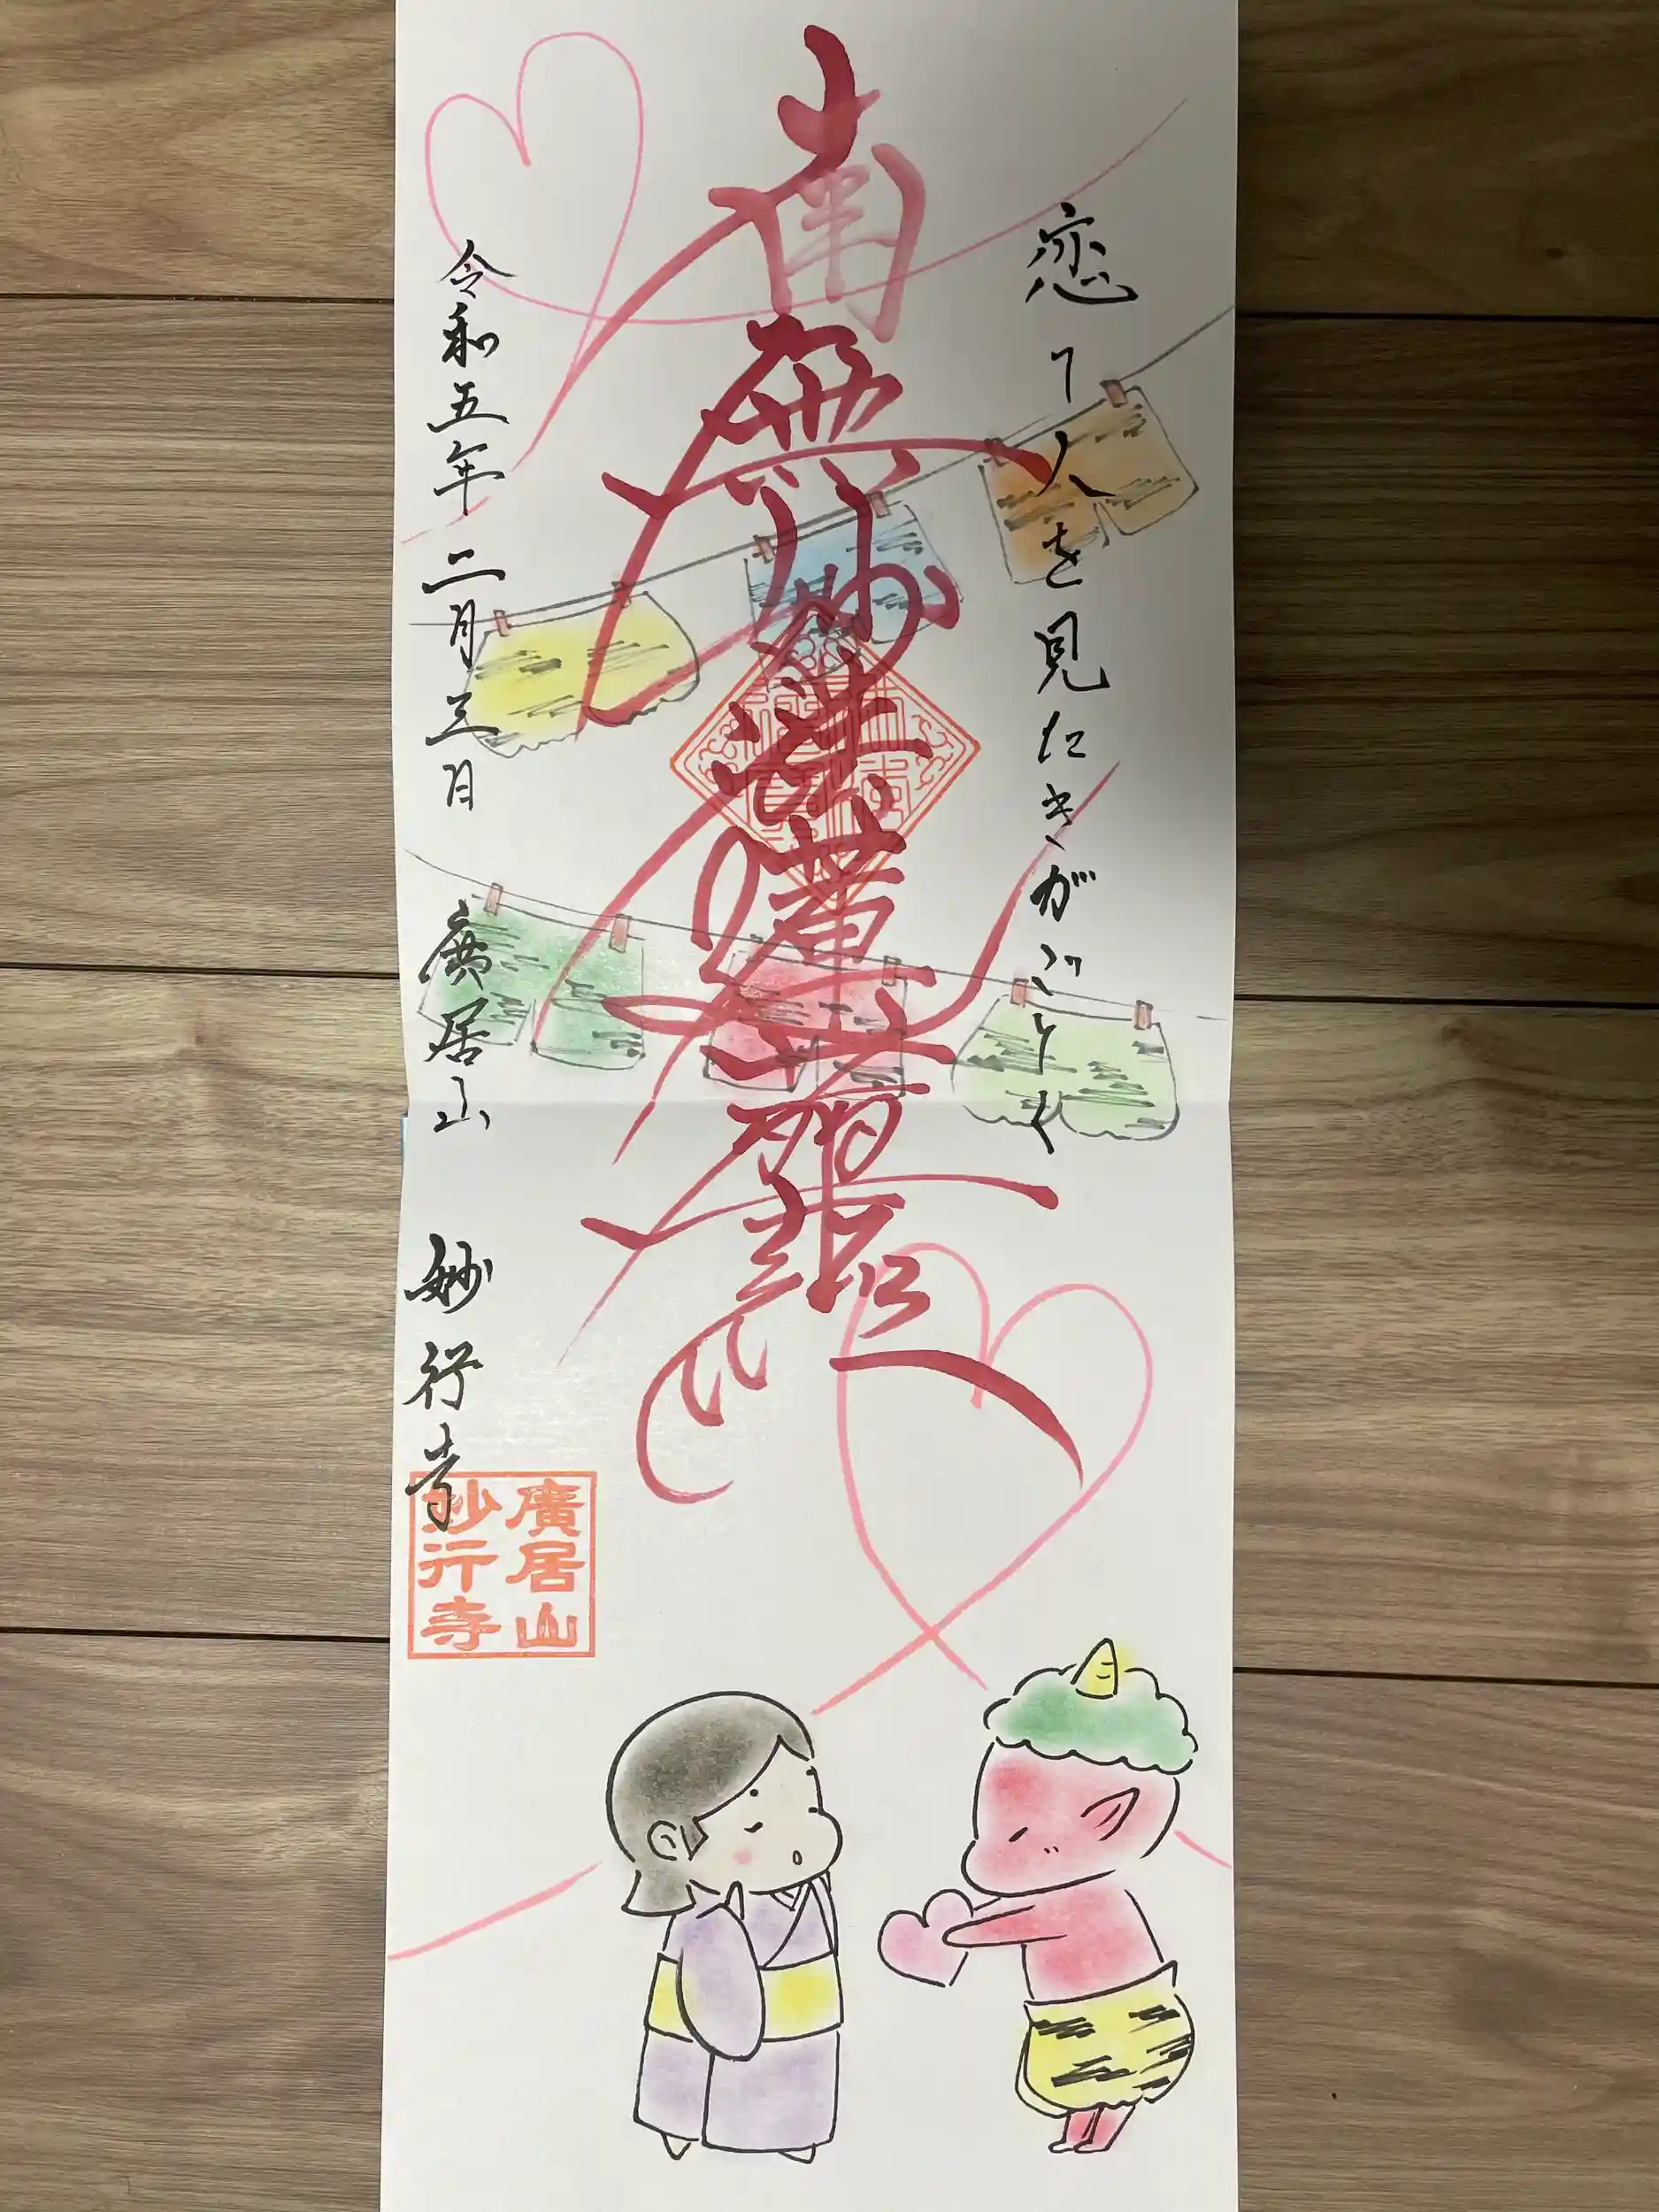 恋て人を見たきがごとく
南無妙法蓮華経
令和五年二月三日 廣居山 妙行寺
廣居山
妙行寺